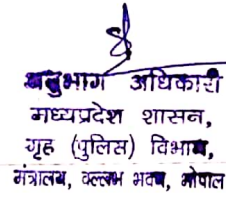 अनुभाग अधिकारी
मध्यप्रदेश शासन,
गृह (पुलिस) विभाग,
मंत्रालय, वल्लभ भवन, भोपाल